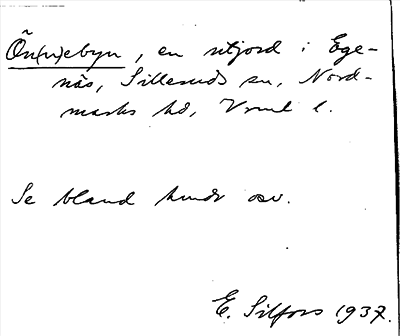 Ön(n)ebyn, en utjord i Ege-
näs, Silleruds sn, Nord-
marks hd, Vrml l.
Se bland hundr osv.
E. Silfors 1937.